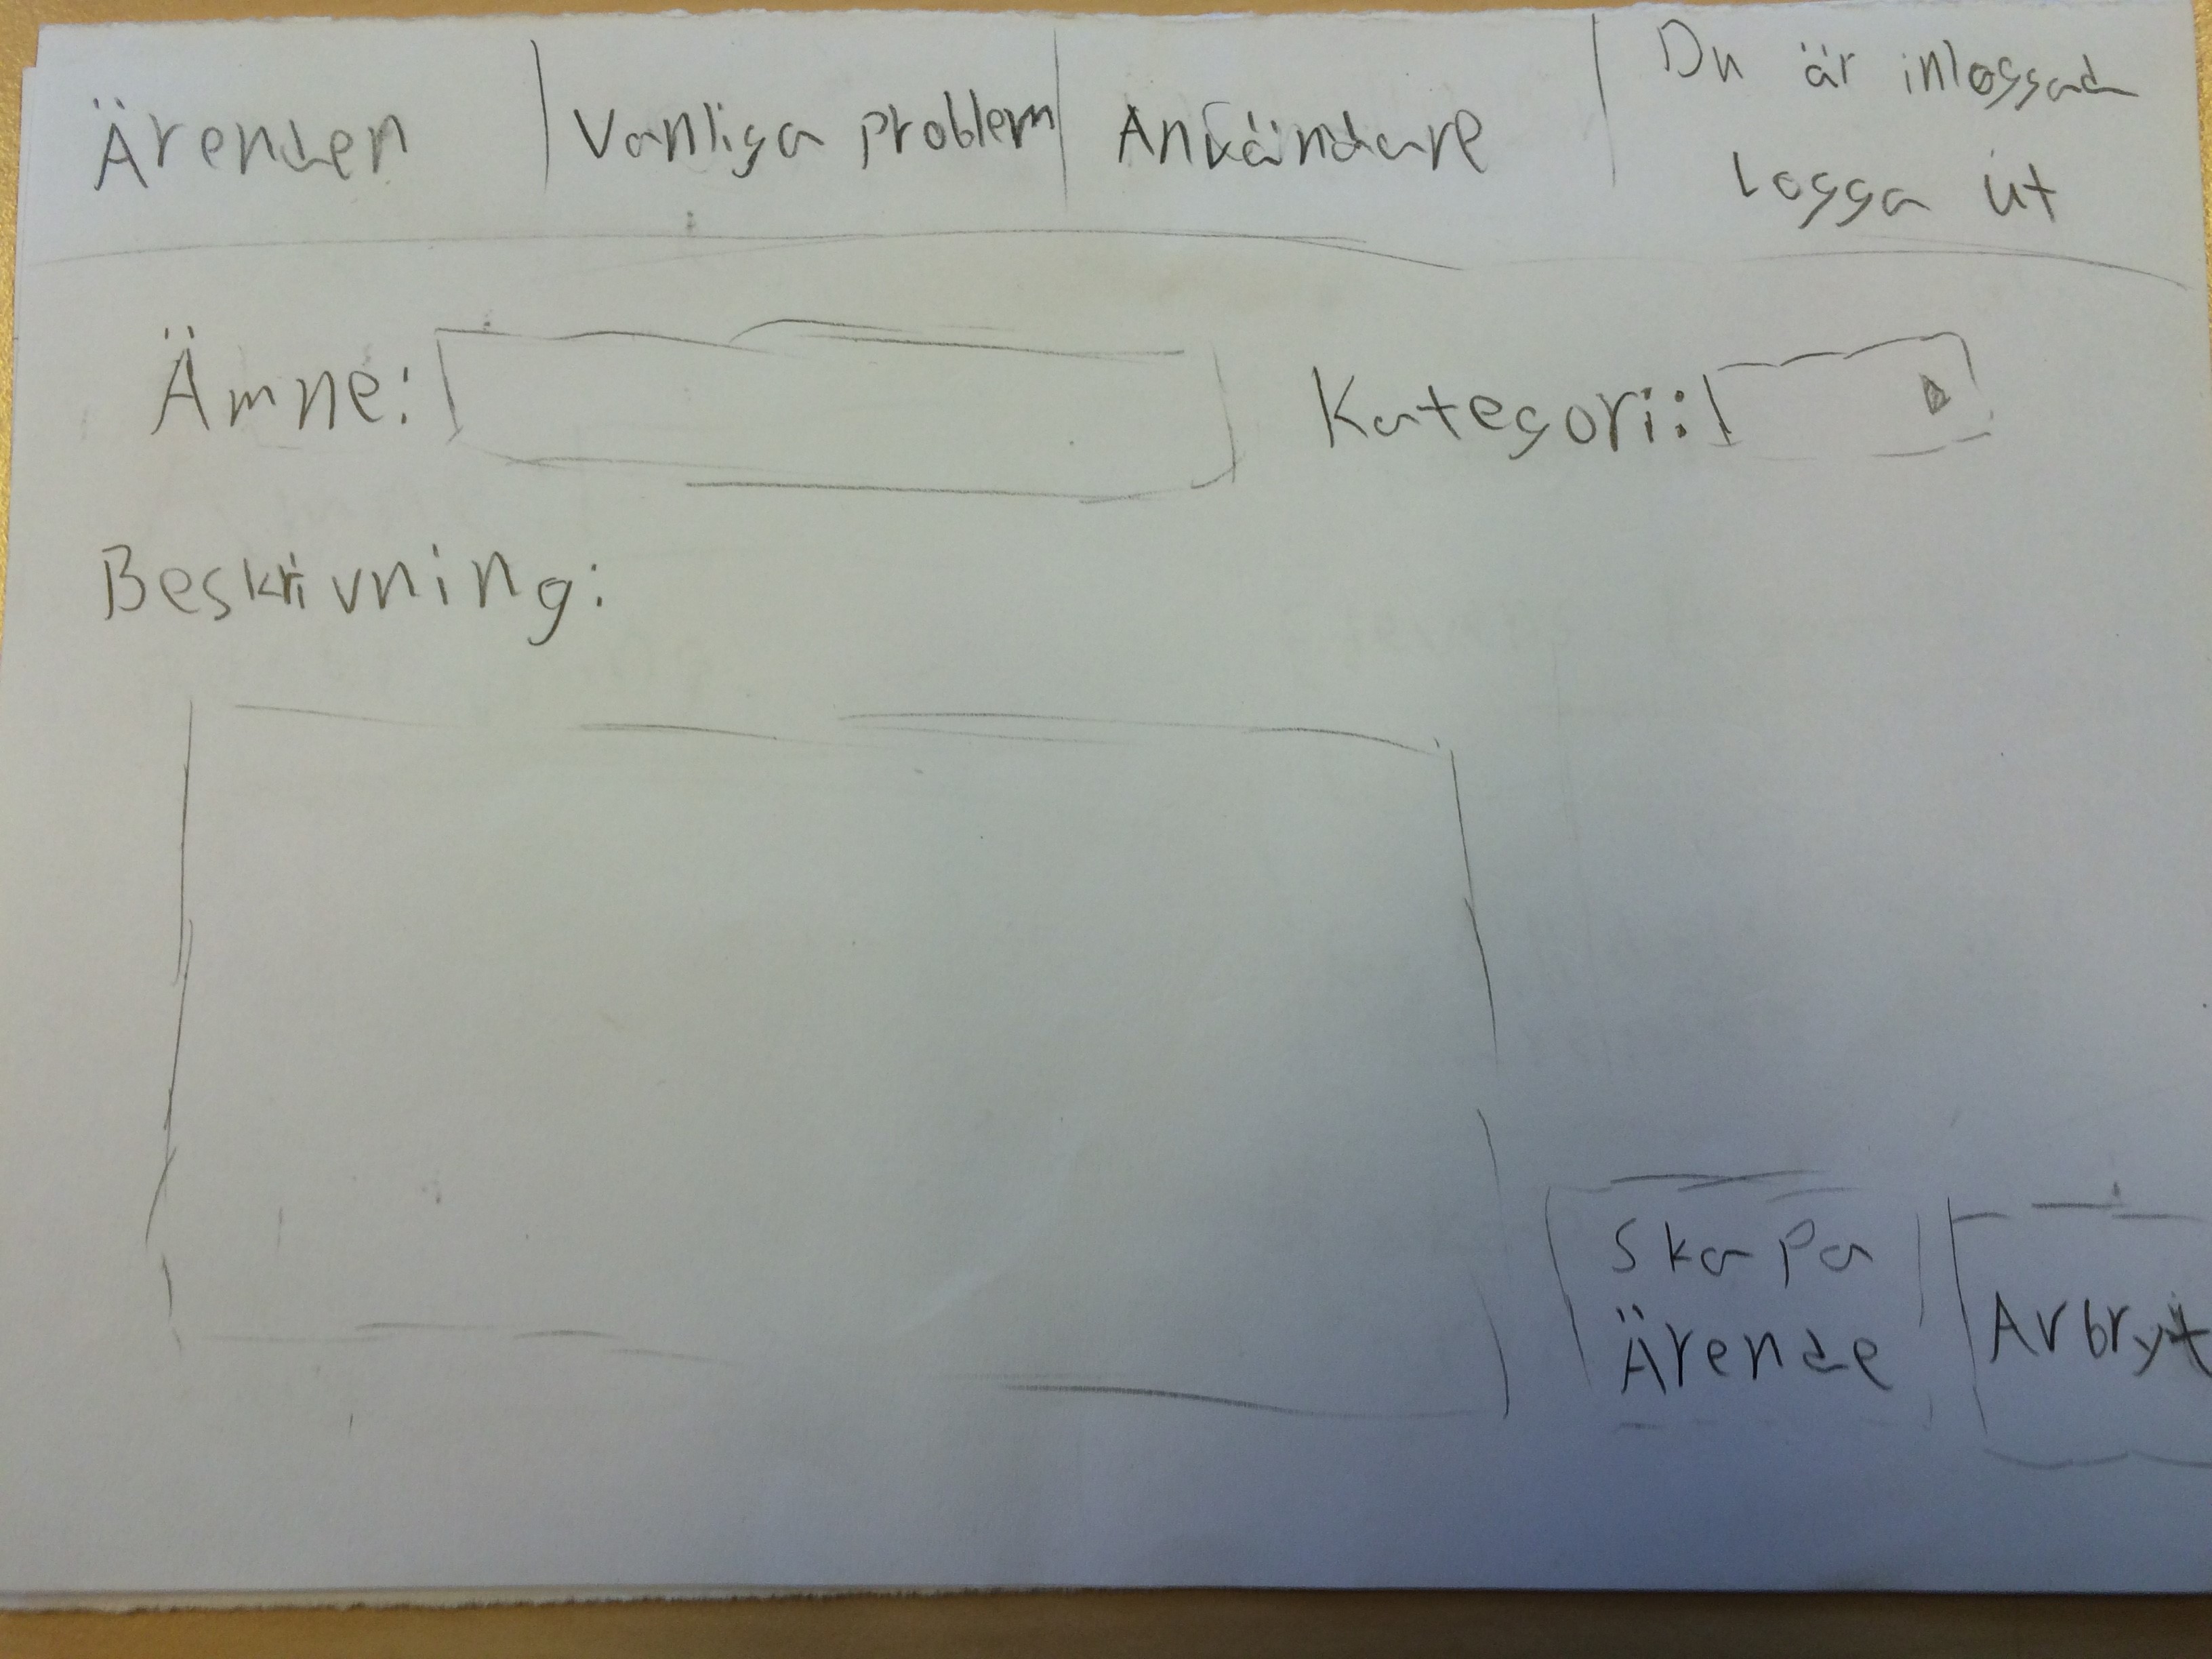 Ärenden
Vanliga problem
Användare
Du är inloggad
Logga ut
Ämne:
Kategori:
Beskrivning:
Skapa
Ärende
Avbryt